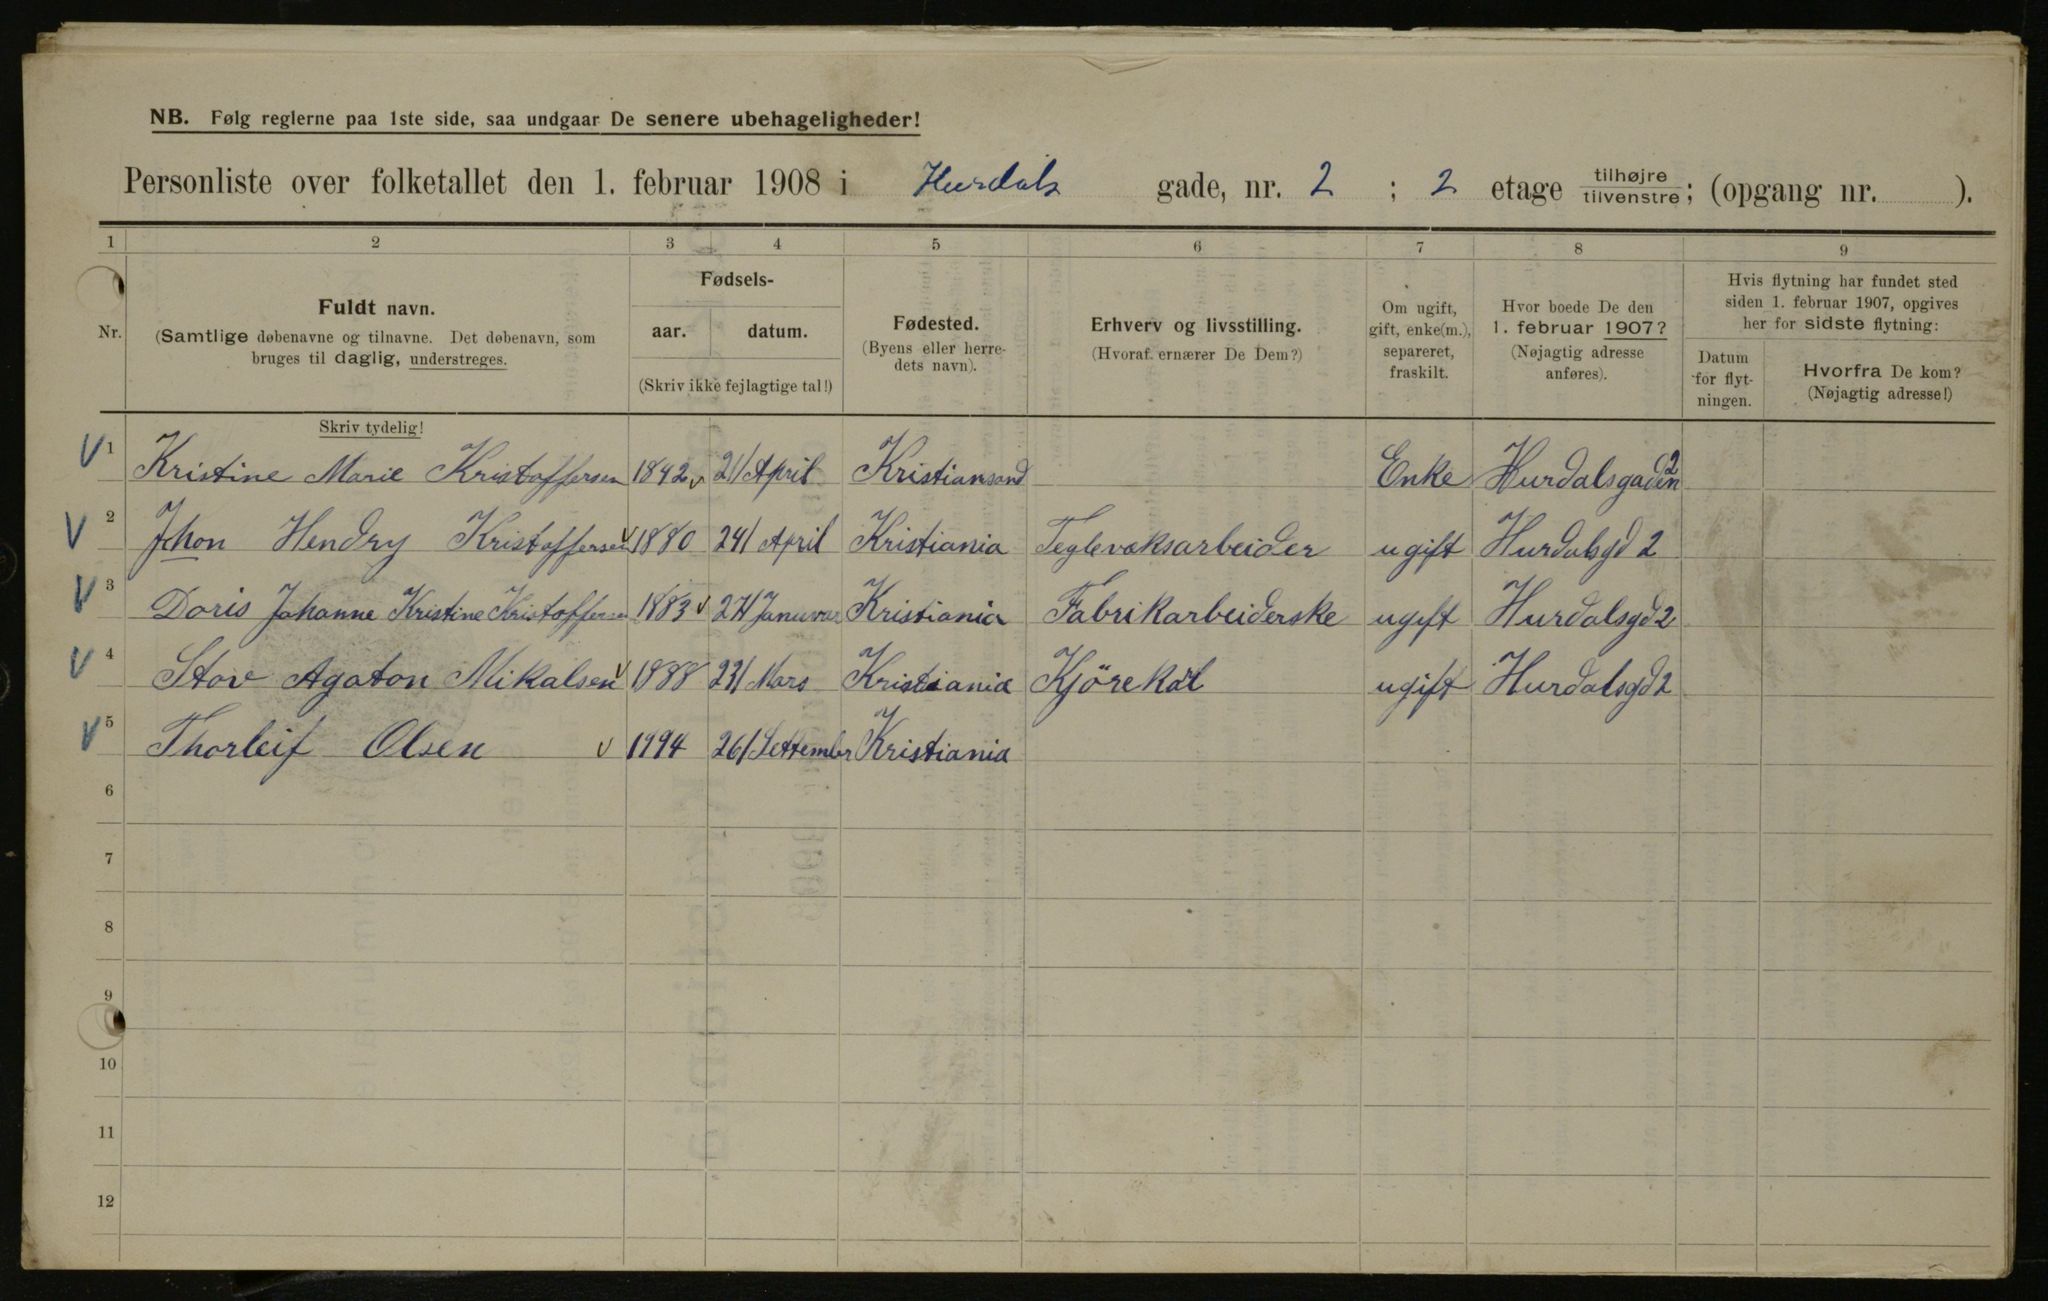 NB. Følg reglerne paa 1ste side, saa undgaar De senere ubehageligheder!
Personliste over folketallet den 1. februar 1908 i Hurdals gade, nr. 2 ; 2 etage tilhøjre tilvenstre; (opgang nr. ).
1 2 3 4 5 6 7 8 9
Nr.
Fuldt navn.
(Samtlige døbenavne og tilnavne. Det døbenavn, som
bruges til daglig, understreges.
Skriv tydelig!
Fødsels-
aar. datum.
(Skriv ikke fejlagtige tal!)
Fødested.
(Byens eller herre-
dets navn).
Erhverv og livsstilling.
(Hvoraf ernærer De Dem?)
Om ugift,
gift, enke(m.),
separeret,
fraskilt.
Hvor boede De den
1. februar 1907?
(Nøjagtig adresse
anføres).
Hvis flytning har fundet sted
siden 1. februar 1907, opgives
her for sidste flytning:
Datum
for flyt-
ningen.
Hvorfra De kom?
(Nøjagtig adresse!)
V 1 Kristine Marie Kristoffersen 1842 v 21/April Kristiansand Enke Hurdalsgaden 2
V 2 Jhon Hendry Kristoffersen v 1880 24/ April Kristiania Teglevæksarbeider ugift Hurdalsgd 2
V 3 Doris Johanne Kristine Kristoffersen 1883 v 27/Januvar Kristiania Fabrikarbeiderske ugift Hurdalsgd 2
V 4 Agaton Mikalsen v 1888 23/ Mars Kristiania Kjörekarl ugift Hurdalsgd 2
V 5 Thorleif Olsen v 1994 26/Settember Kristiania
6
7
8
9
10
11
12